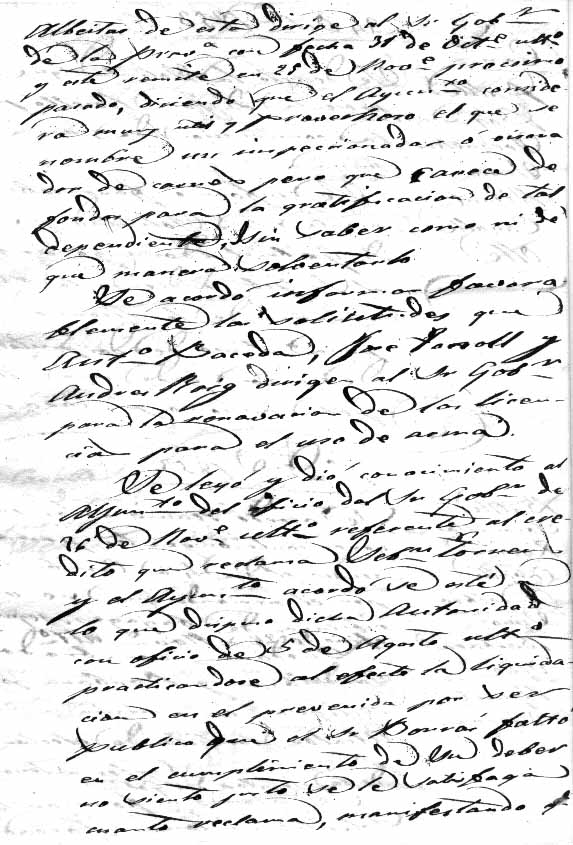 Albertas de esta dirige al Sr Gobor
de la Prova con fecha 31 de Octe ulto
y este remite en 25 de Nove procsimo
pasado, diciendo que el Ayunto conside-
ra muy util y provechoso el que se
nombre un inspeccionador ó
dor de carnes pero que carece de
fondos para la gratificacion de tal
dependiente, sin saber como ni de
que manera solventarlo
Se acordó informar favora
blemente las solicitudes que
Anto Baceda, Jme y
Andres Roig dirigen al Sr Gobor
para la renovacion de las licen-
cias para el uso de arma.
Se leyó y dió conocimiento al
Ayunto del oficio del Sr Gobor de
26 de Nove ulto referente al cre-
dito que reclama Sebn Torren
y el Ayunto acordó se esté á
lo que dispuso dicha Autoridad
con oficio de 5 de Agosto ulto
practicandose al efecto la liquida-
cion en el prevenida por ser
publico que el Sr faltó
en el cumplimiento de su deber
no siento justo se le satisfaga
cuanto reclama, manifestando